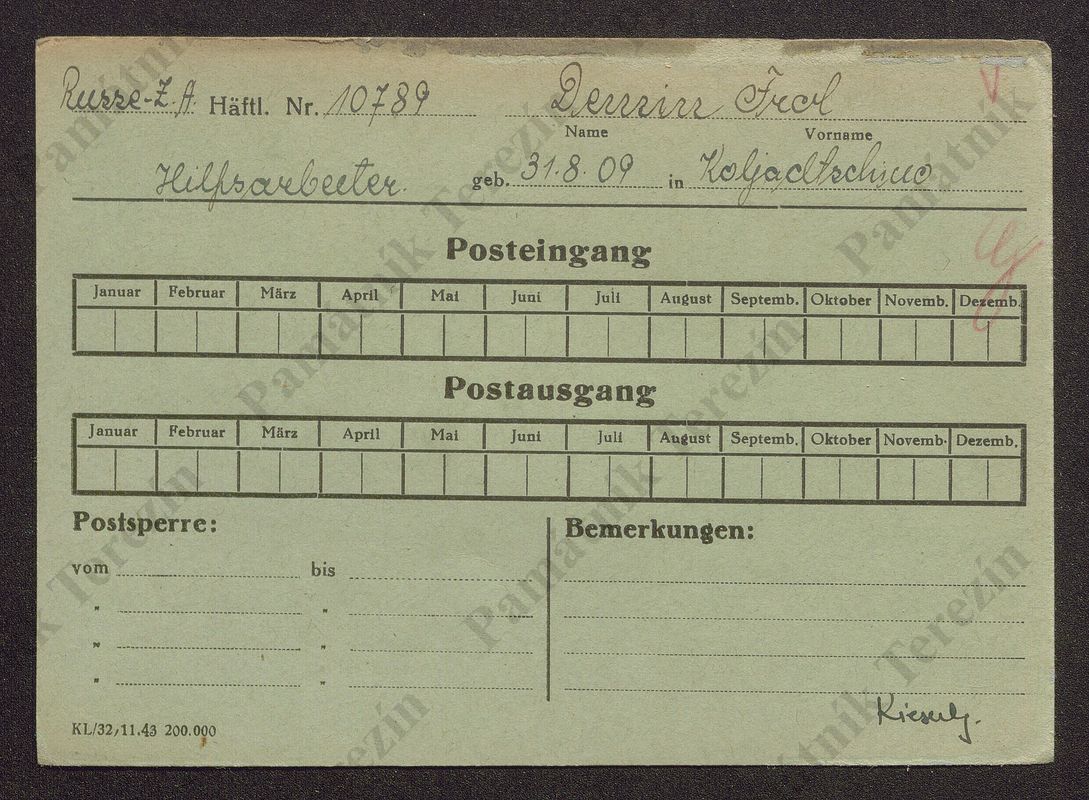 Russe-Z.A. Häftl. Nr. 10789 Demin Frol
Name Vorname
Hilfsarbeiter geb. 31.8.09 in Koljadtschino
Posteingang
Januar Februar März April Mai Juni Juli August Septemb. Oktober Novemb. Dezemb.
Postausgang
Januar Februar März April Mai Juni Juli August Septemb. Oktober Novemb. Dezemb.
Postsperre: Bemerkungen:
vom bis
" "
" "
" "
KL/32/11.43 200.000
Památník Terezín